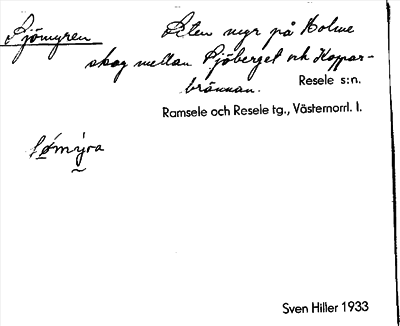 Sjömyren
Liten myr på Holme
skog mellan Sjöberget och Koppar-
brännan.
Resele s:n.
Ramsele och Resele tg., Västernorrl. l.
Sven Hiller 1933